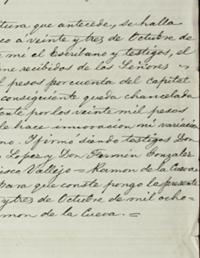 tura que antecede, se halla
co a veinte y tres de Octubre de
me el Escribano y testigos, el
ne recibidos de los Señores
l pesos por cuenta del Capital
consiguiente queda chancelada
ente por los veinte mil pesos
le hace innovacion ni variacion
no. I firmó siendo testigos Don
Lopez y Don Fermin Gonzalez
isco Vallejo = Ramon de la Cueva
para que conste pongo la presente
y tres de Octubre de mil ocho=
mon de la Cueva. =